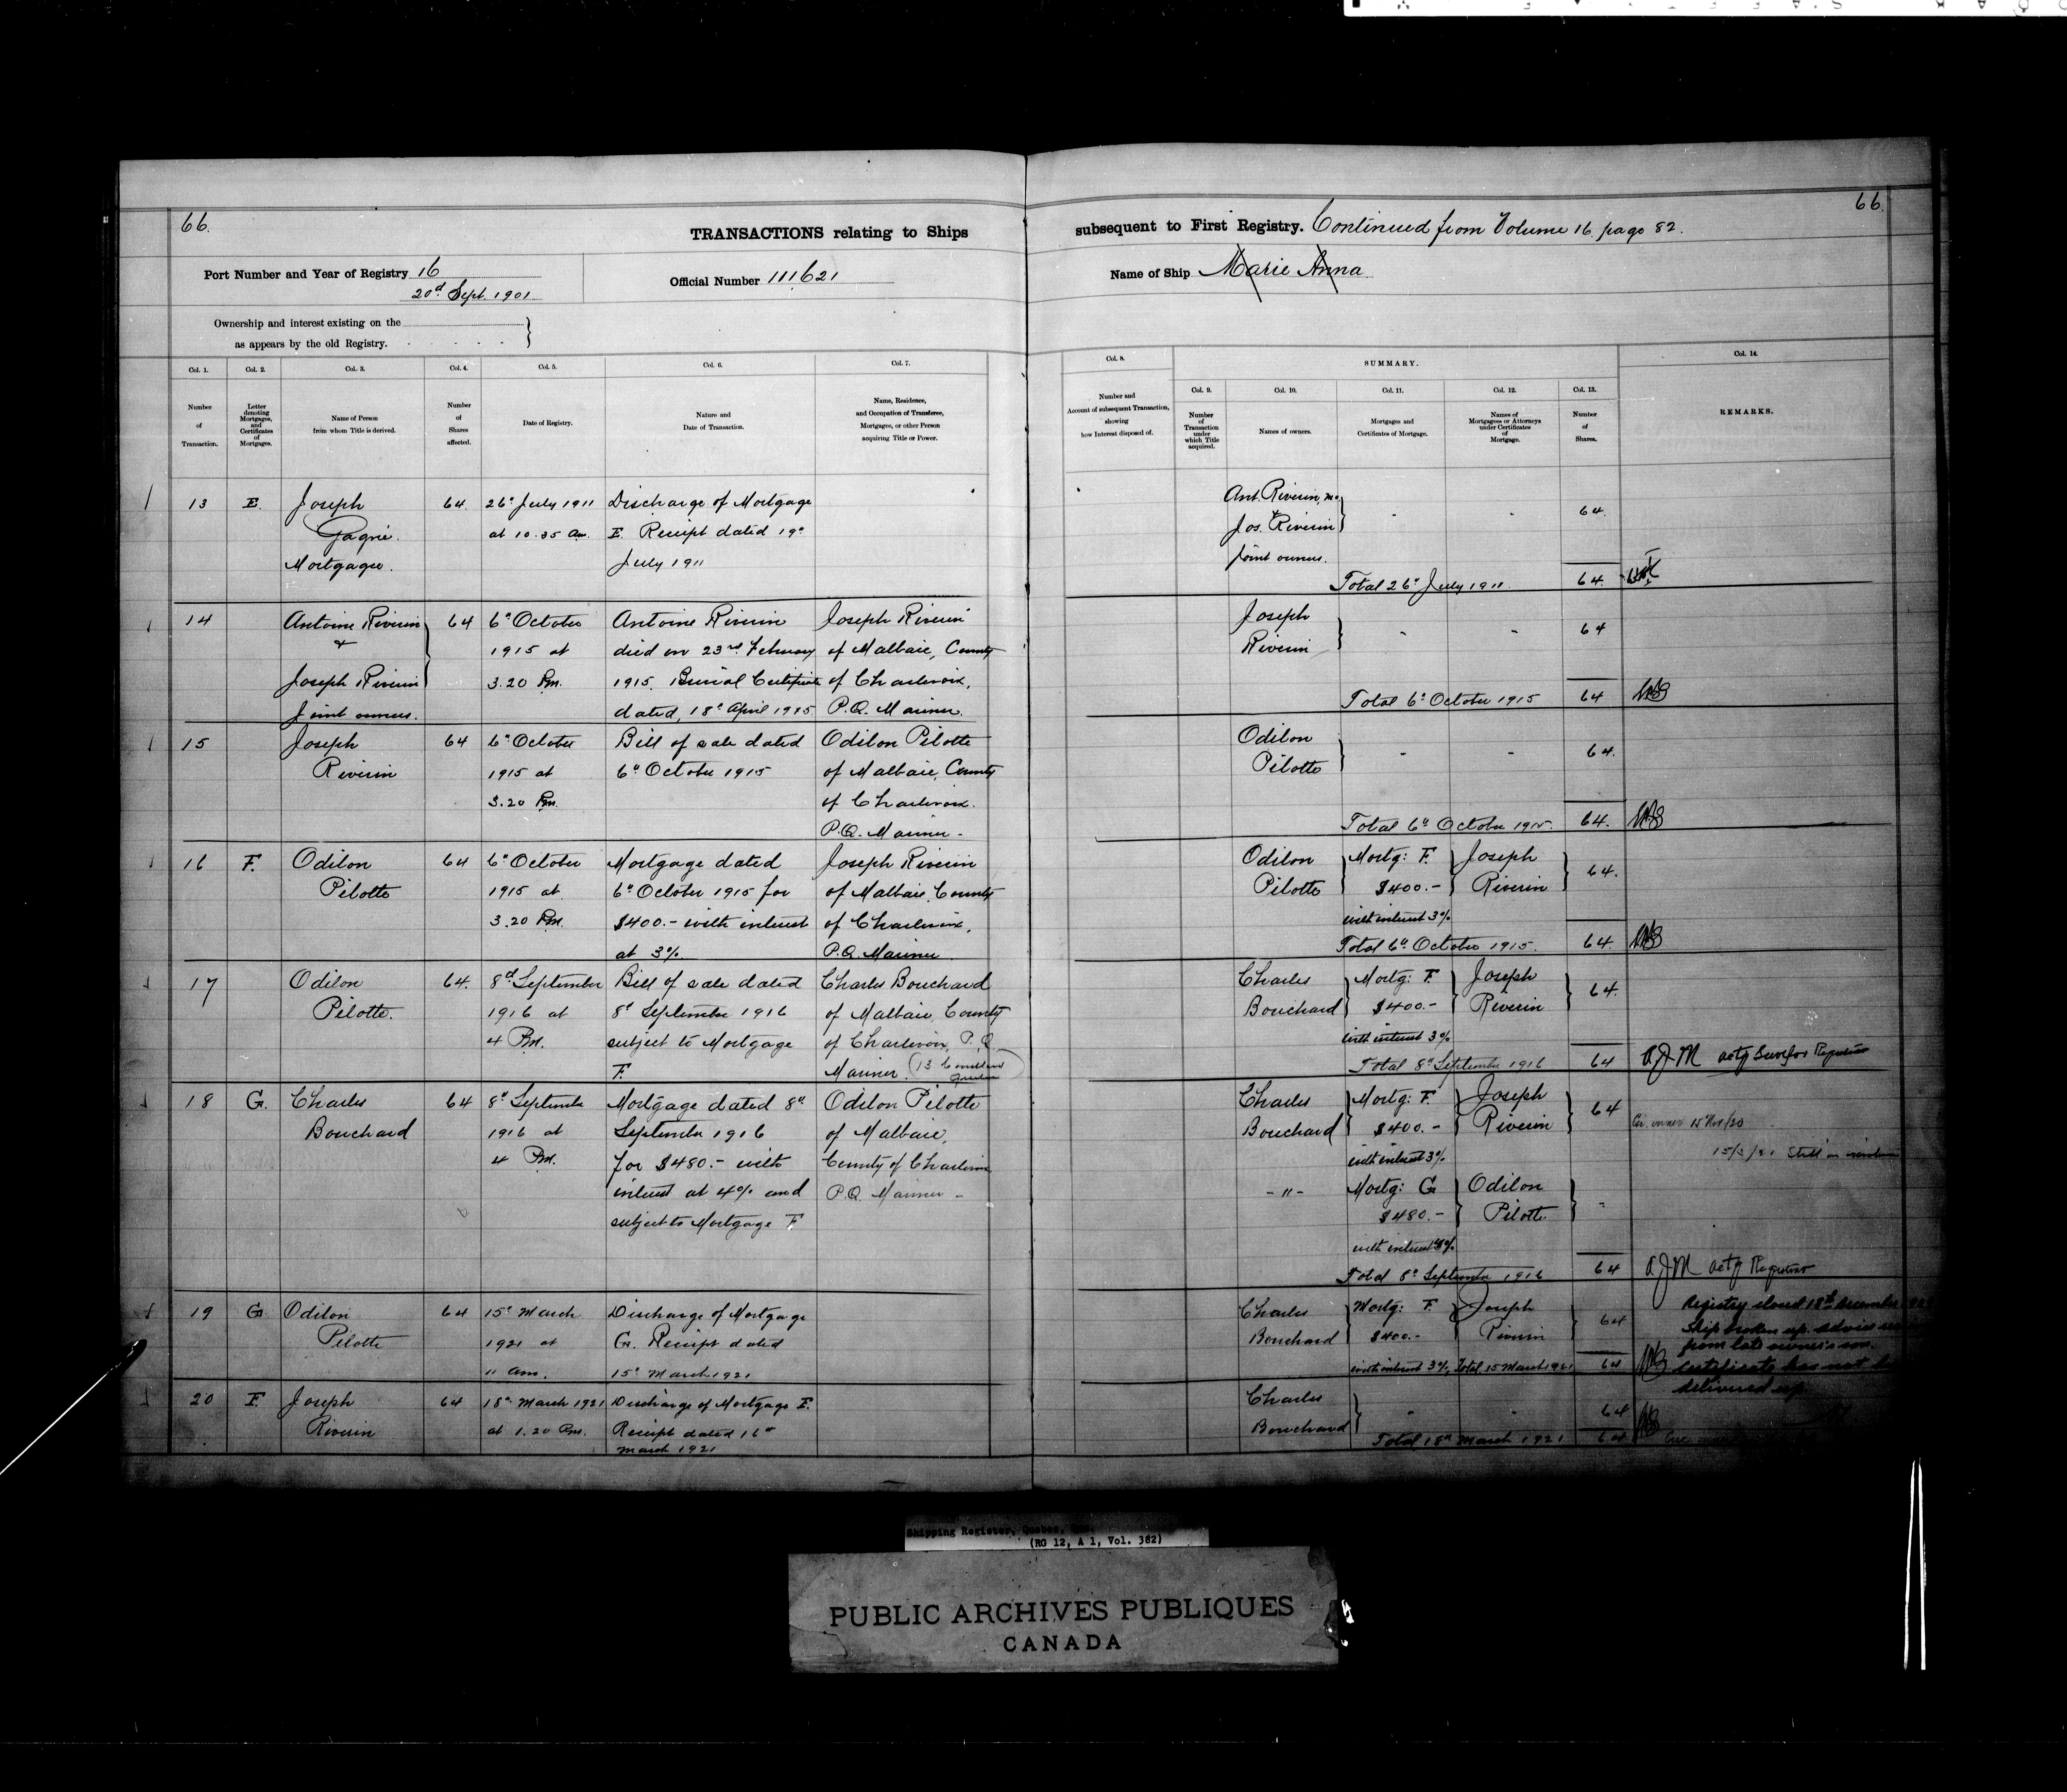 66.
66.
TRANSACTIONS relating to Ships
subsequent to First Registry. Continued from Volume 16. page 82.
Port Number and Year of Registry 16
20d Sept. 1901.
Official Number 111621
Name of Ship Marie Anna
Ownership and interest existing on the
as appears by the old Registry.
Col. 1. Number of Transaction.
Col. 2. Letter denoting Mortgages, and Certificates of Mortgages.
Col. 3. Name of Person from whom Title is derived.
Col. 4. Number of Shares affected.
Col. 5. Date of Registry.
Col. 6. Nature and Date of Transaction.
Col. 7. Name, Residence, and Occupation of Transferee, Mortgagee, or other Person acquiring Title or Power.
Col. 8. Number and Account of subsequent Transaction, showing how Interest disposed of.
SUMMARY.
Col. 9. Number of Transaction under which Title acquired.
Col. 10. Names of owners.
Col. 11. Mortgages and Certificates of Mortgage.
Col. 12. Names of Mortgagees or Attorneys under Certificates of Mortgage.
Col. 13. Number of Shares.
Col. 14. REMARKS.
13 E. Joseph 64. 26th July 1911 Discharge of Mortgage
Gagné. at 10.35 am. E. Receipt dated 19th
Mortgagee. July 1911
Ant. Riverin,
Jos. Riverin 64.
Joint owners.
Total 26th July 1911. 64.
14 Antoine Riverin 64 6th October Antoine Riverin Joseph Riverin
& 1915 at died on 23rd February of Malbaie, County
Joseph Riverin 3.20 Pm. 1915. Burial Certificate of Charlevoix,
Joint owners. dated, 18th April 1915 P.Q. Mariner.
Joseph
Riverin 64
Total 6th October 1915 64
15 Joseph 64 6th October Bill of sale dated Odilon Pilotte
Riverin 1915 at 6th October 1915 of Malbaie, County
3.20 Pm. of Charlevoix.
P.Q. Mariner -
Odilon
Pilotte 64.
Total 6th October 1915. 64.
16 F. Odilon 64 6th October Mortgage dated Joseph Riverin
Pilotte 1915 at 6th October 1915 for of Malbaie, County
3.20 Pm. $400.- with interest of Charlevoix,
at 3% P.Q. Mariner.
Odilon Mortg: F. Joseph
Pilotte $400.- Riverin 64.
with interest 3%
Total 6th October 1915. 64.
17 Odilon 64. 8d September Bill of sale dated Charles Bouchard
Pilotte. 1916 at 8th September 1916 of Malbaie, County
4 Pm. subject to Mortgage of Charlevoix, P.Q.
F. Mariner.
Charles Mortg: F. Joseph
Bouchard $400.- Riverin 64.
with interest 3%
Total 8th September 1916 64 AJM
18 G. Charles 64 8th September Mortgage dated 8th Odilon Pilotte
Bouchard 1916 at September 1916 of Malbaie,
4 Pm. for $480.- with County of Charlevoix
interest at 4% and P.Q. Mariner -
subject to Mortgage F
Charles Mortg: F. Joseph
Bouchard $400.- Riverin 64
with interest 3%
- " - Mortg: G Odilon
$480.- Pilotte. -
with interest
Total 8th September 1916 64 AJM actg Registrar
19 G Odilon 64 15th March Discharge of Mortgage
Pilotte 1921 at G. Receipt dated
11 am. 15th March 1921
Charles Mortg: F. Joseph
Bouchard $400.- Riverin 64
with interest 3% Total 15 March 1921 64
Registry closed 18th December
Ship broken up. advice
from late owner's son.
Certificate has not
delivered up.
20 F. Joseph 64 18th March 1921 Discharge of Mortgage F.
Riverin at 1.20 Pm. Receipt dated 16th
March 1921
Charles
Bouchard 64
Total 18th March 1921 64
Shipping Register, Quebec,
(RG 12, A 1, Vol. 382)
PUBLIC ARCHIVES PUBLIQUES
CANADA